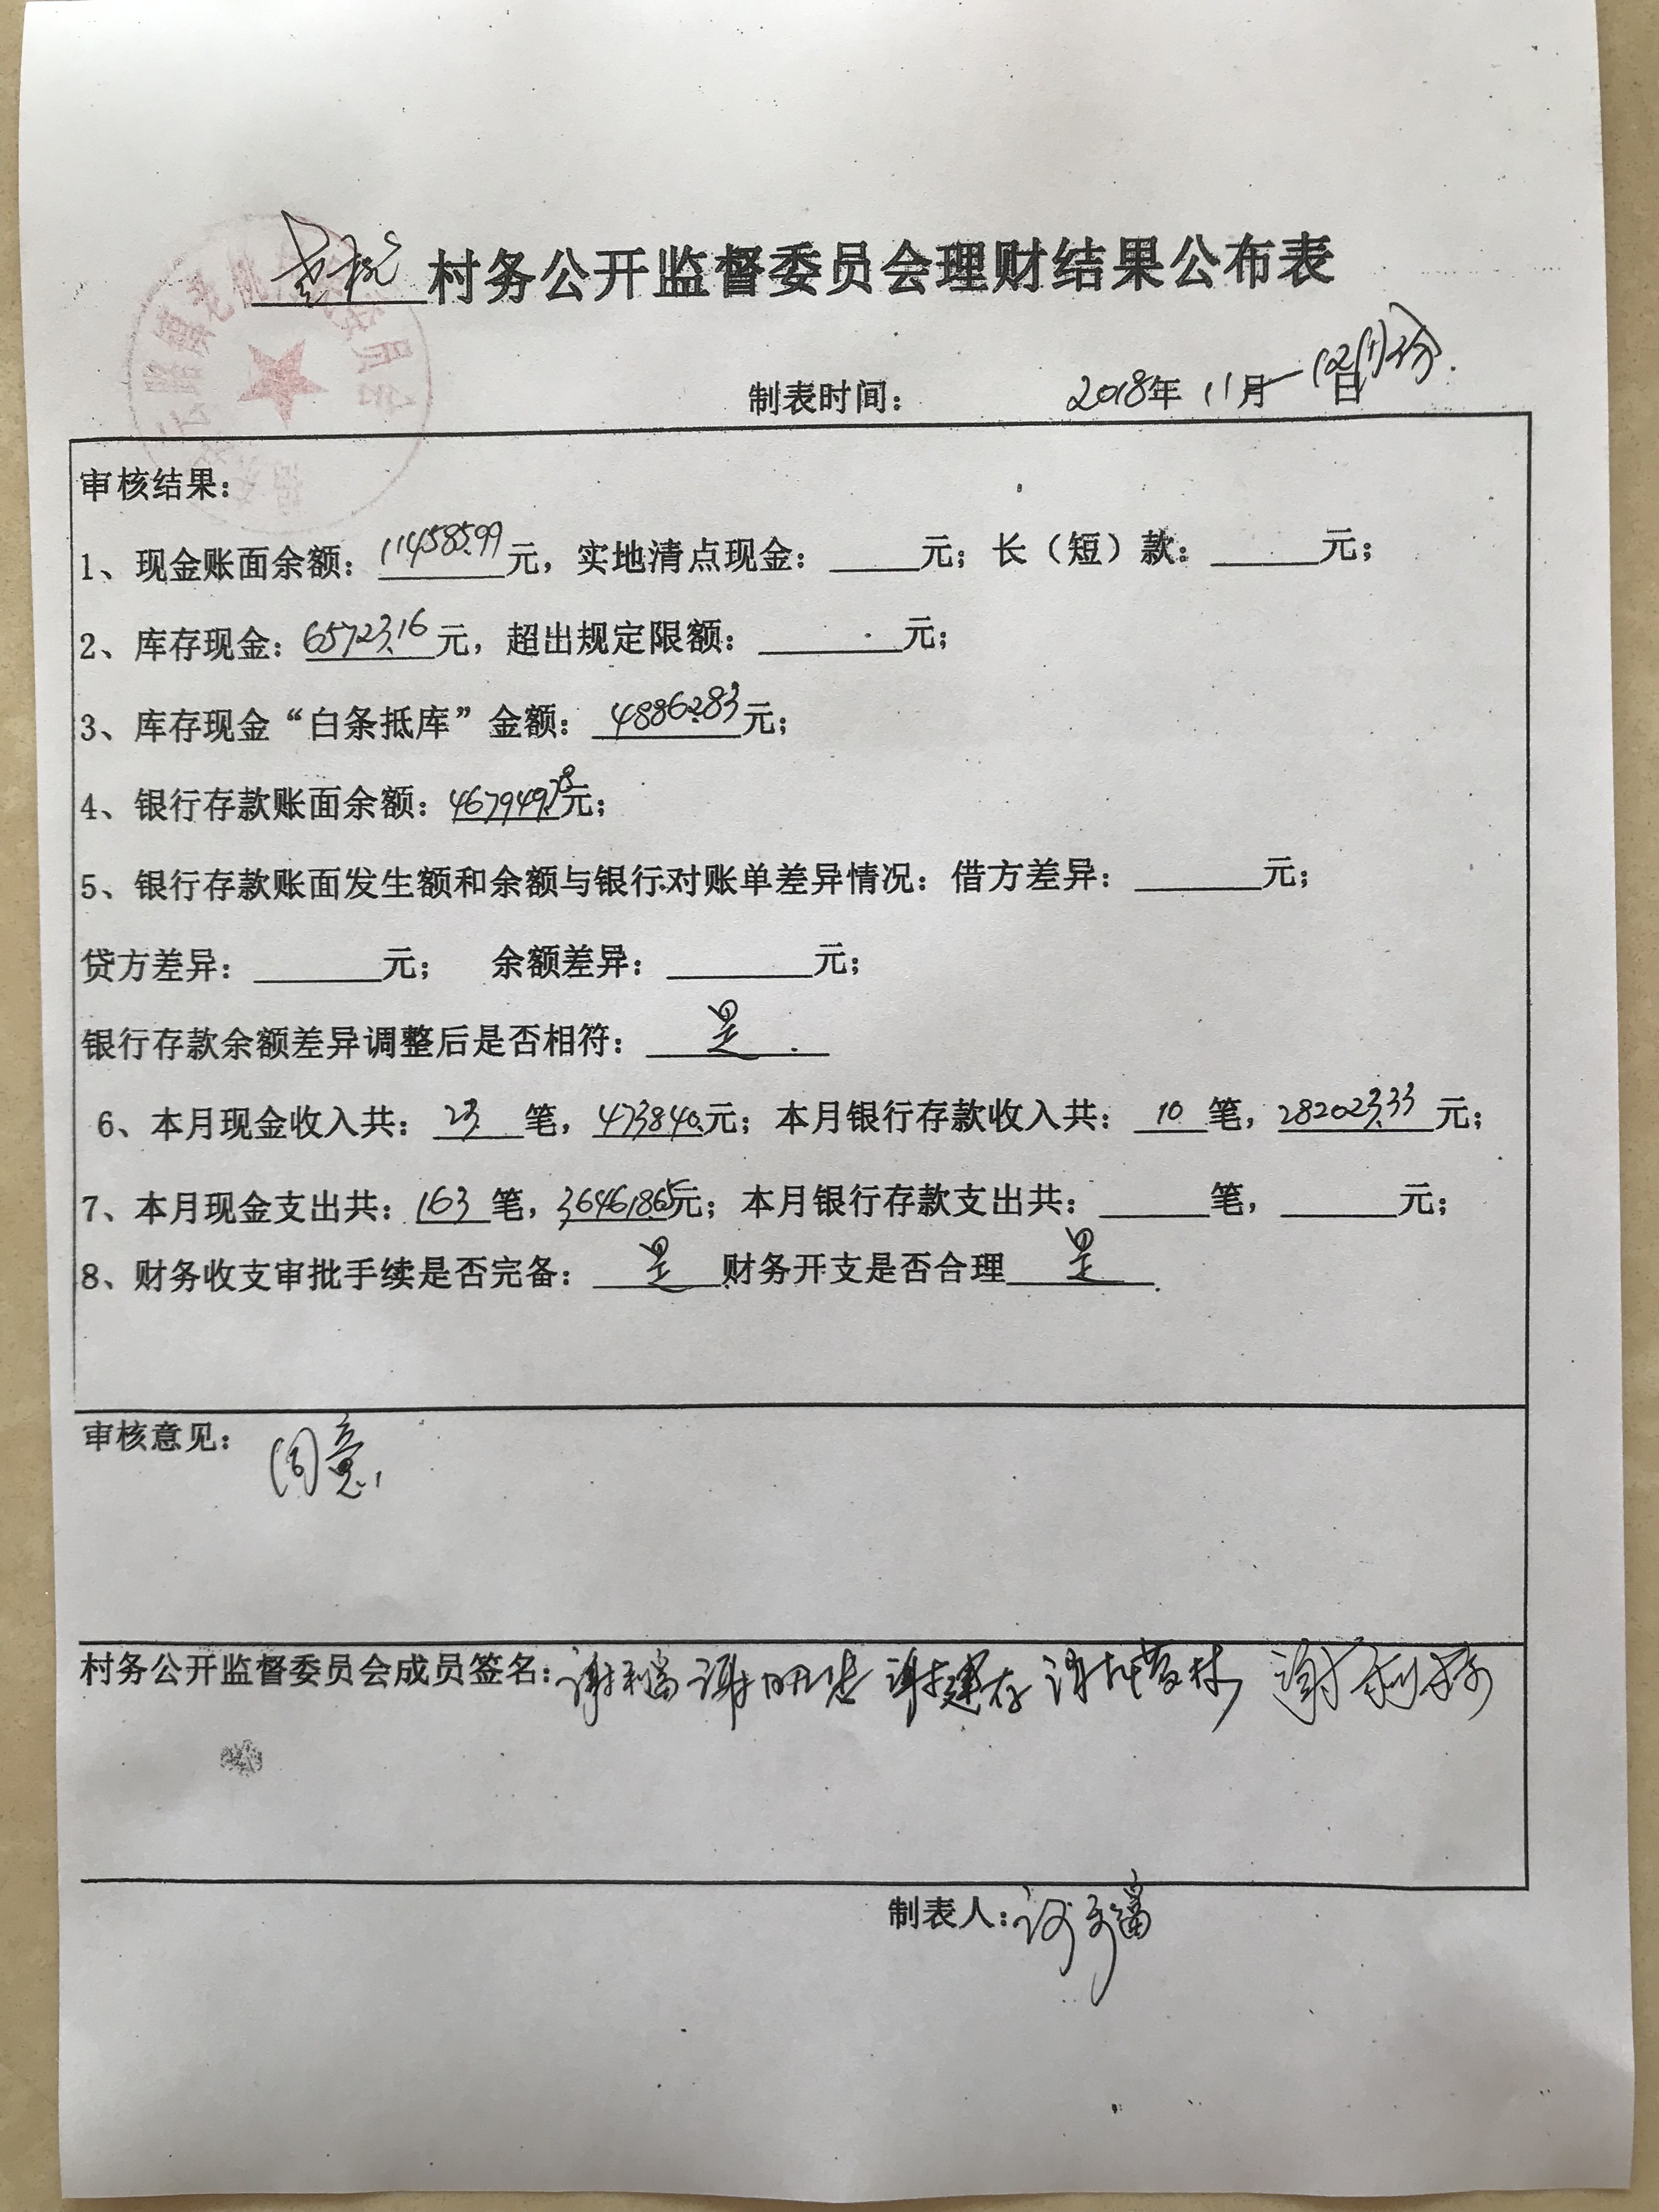 村务公开监督委员会理财结果公布表
制表时间： 2018年 11月—12月份
审核结果：
1、现金账面余额：114585.99元，实地清点现金：_____元；长（短）款：______元；
2、库存现金：65723.16元，超出规定限额：________元；
3、库存现金“白条抵库”金额：48862.83元；
4、银行存款账面余额：467949.78元；
5、银行存款账面发生额和余额与银行对账单差异情况：借方差异：_______元；
贷方差异：_______元； 余额差异：________元；
银行存款余额差异调整后是否相符：是
6、本月现金收入共：23笔，473840.元；本月银行存款收入共：10笔，282023.33元；
7、本月现金支出共：163笔，364618.65元；本月银行存款支出共：______笔，______元；
8、财务收支审批手续是否完备：是 财务开支是否合理 是
审核意见：同意
村务公开监督委员会成员签名：谢利富 谢明忠 谢建存
制表人：